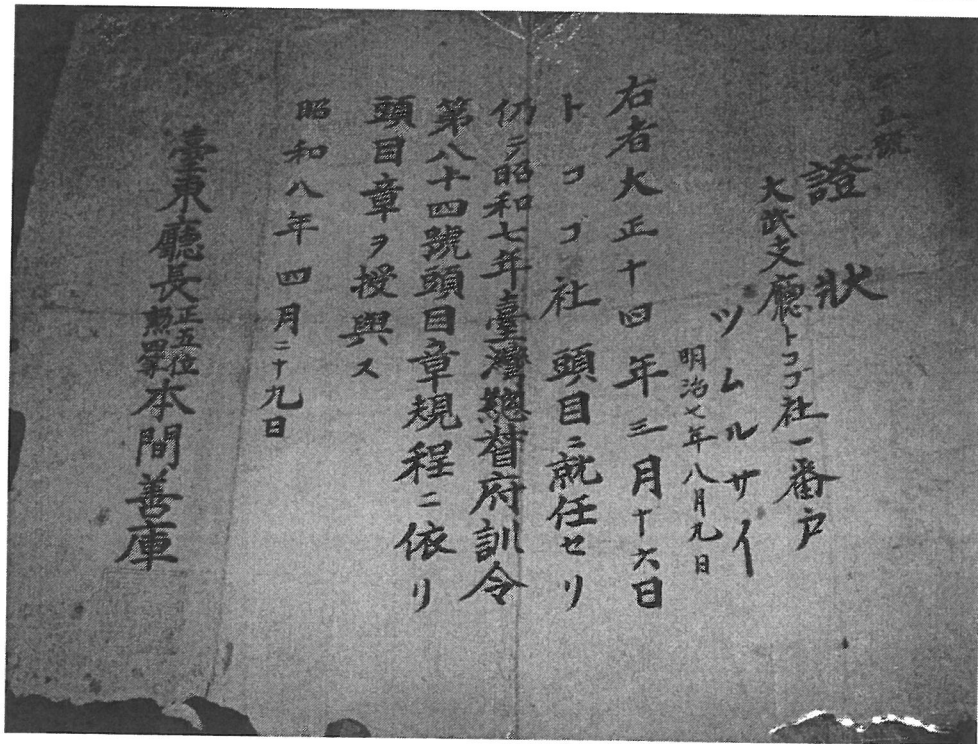 證狀
大武支廳トコブ社一番戸
ツムルサイ
明治七年八月九日
右者大正十四年三月十六日
トコブ社頭目ニ就任セリ
仍テ昭和七年臺灣總督府訓令
第八十四號頭目章規程ニ依リ
頭目章ヲ授與ス
昭和八年四月二十九日
臺東廳長正五位勲四等本間善庫